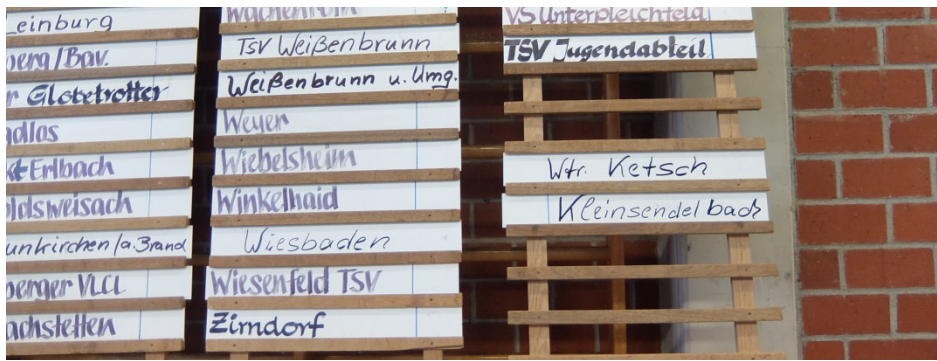 einburg
berg/Bav.
r Globetrotter
adlos
kt Erlbach
oldsweisach
unkirchen/a.Brand
berger VLCL
achstetten
Wachenroth
TSV Weißenbrunn
Weißenbrunn u. Umg.
Weyer
Wiebelsheim
Winkelhaid
Wiesbaden
Wiesenfeld TSV
Zirndorf
VS Unterpleichfeld
TSV Jugendabteil.
Wfr. Ketsch
Kleinsendelbach